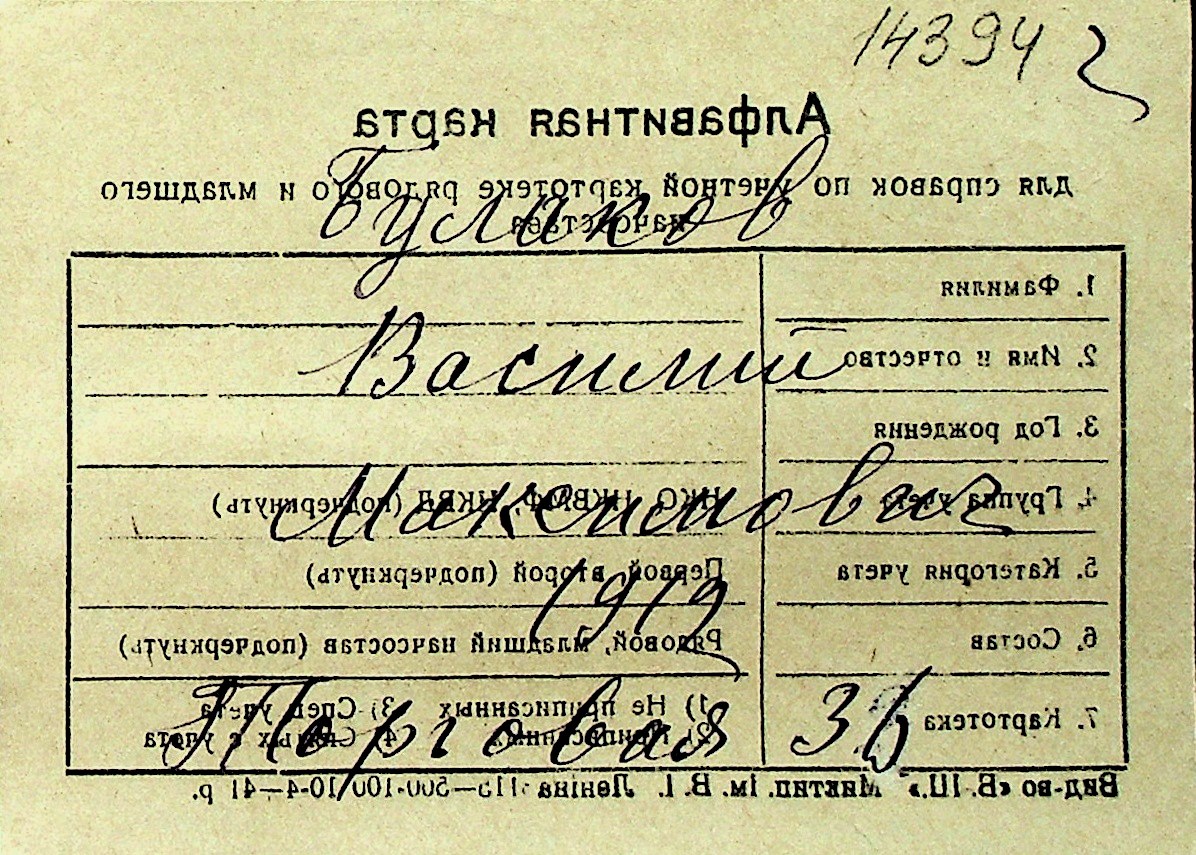 14394
Алфавитная карта
для справок по учетной картотеке рядового и младшего
начсостава
Булаков
1. Фамилия
Василий
2. Имя и отчество
3. Год рождения
Максимович
4. Группа учета НКО, НКВМФ, НКВД (подчеркнуть)
5. Категория учета Первой, второй (подчеркнуть)
1912
6. Состав Рядовой, младший начсостав (подчеркнуть)
7. Картотека 1) Не приписанных 3) Спец. учета
2) Приписанных 4) Снятых с учета
Торговая 36
Вид-во «В.Ш.» Миктип. ім. В. І. Леніна 115—500-100 10-4—41 р.